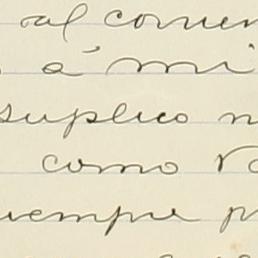 al comen
á mi
suplico n
como V
siempre p